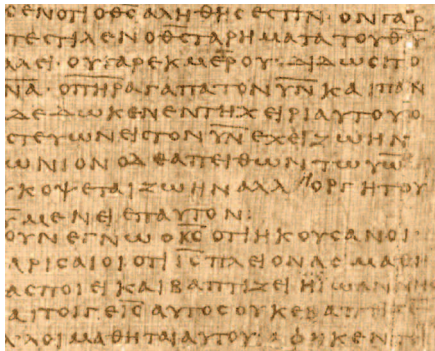 ϹΕΝΟΤΙΟΘ̅Ϲ̅ΑΛΗΘΗϹΕϹΤΙΝ·ΟΝΓΑΡ
ΠΕϹΤΙΛΕΝΟΘ̅Ϲ̅ΤΑΡΗΜΑΤΑΤΟΥΘ̅Υ̅
ΛΛΕΙ·ΟΥΓΑΡΕΚΜΕΡΟΥ·ΔΙΔΩϹΙΤΟ
Ν̅Α̅·ΟΠ̅Η̅Ρ̅ΑΓΑΠΑΤΟΝΥ̅Ν̅ΚΑΙΠΑΝ
ΔΕΔΩΚΕΝΕΝΤΗΧΕΙΡΙΑΥΤΟΥΟ
ϹΤΕΥΩΝΕΙϹΤΟΝΥ̅Ν̅ΕΧΕΙΖΩΗΝ
ΩΝΙΟΝΟΔΕΑΠΕΙΘΩΝΤΩΥ̅Ω̅
ΚΟΨΕΤΑΙΖΩΗΝΑΛΛΗΟΡΓΗΤΟΥ
ΜΕΝΕΙΕΠΑΥΤΟΝ·
ΟΥΝΕΓΝΩΟΚ̅Ϲ̅ΟΤΙΗΚΟΥϹΑΝΟΙ·
ΑΡΙϹΑΙΟΙΟΤΙΙ̅Ϲ̅ΠΛΕΙΟΝΑϹΜΑΘΗ
ΑϹΠΟΙΕΙΚΑΙΒΑΠΤΙΖΕΙΗΙΩΑΝΝΗ
ΑΙΤΟΙΓΕΙ̅Ϲ̅ΑΥΤΟϹΟΥΚΕΒΑΠΤΙ
ΛΛΟΙΜΑΘΗΤΑΙΑΥΤΟΥ·ΑΦΗΚΕΝ